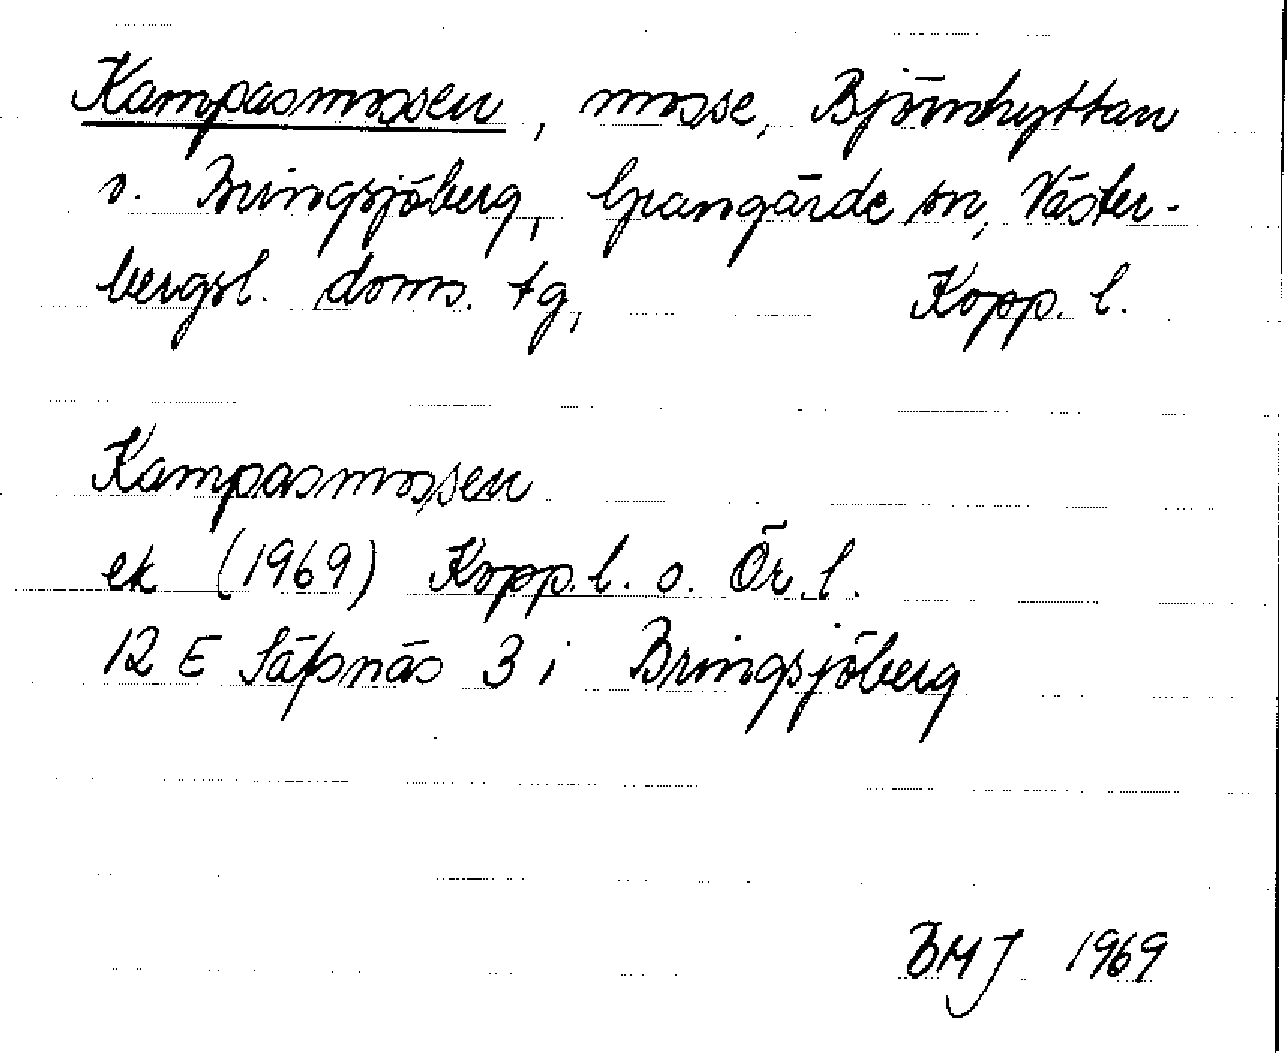 Kampasmossen, mosse, Björnhyttan
s. Bringsjöberg, Grangärde sn, Väster-
bergsl. doms. tg, Kopp. l.
Kampasmossen
ek (1969) Kopp. l. o. Ör. l.
12 E Säfsnäs 3 i Bringsjöberg
BMJ 1969